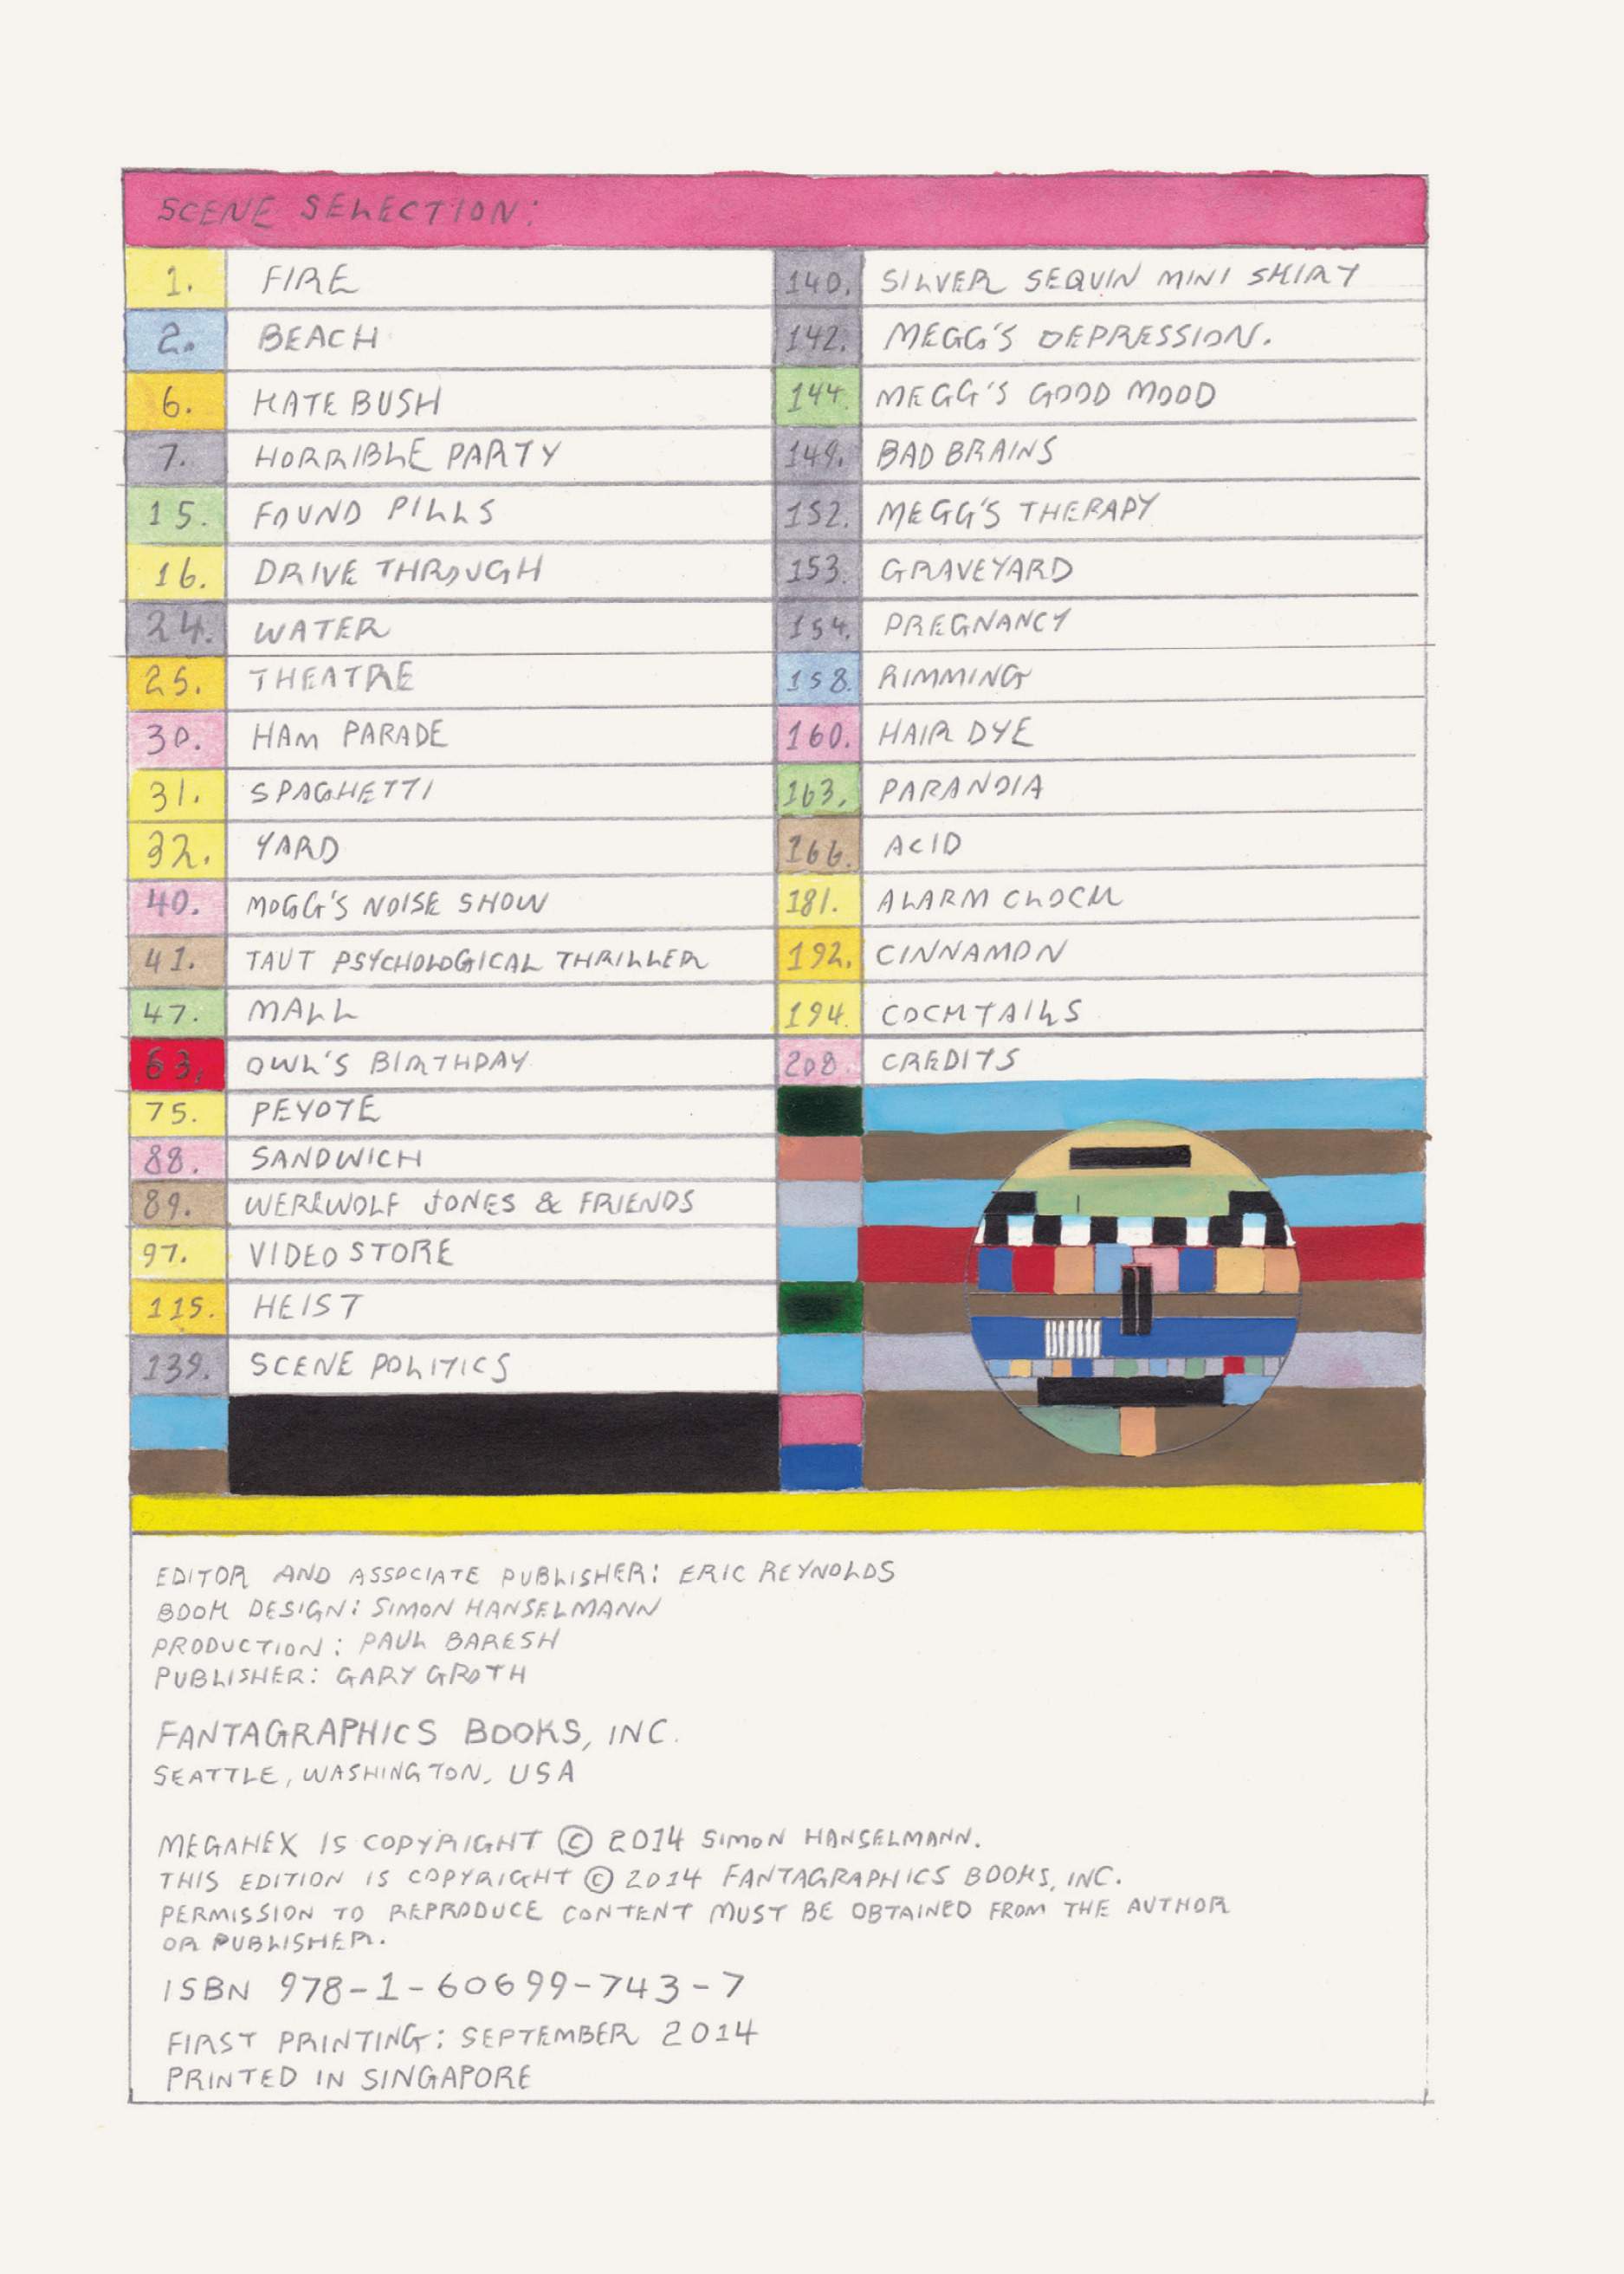 SCENE SELECTION:
1. FIRE
2. BEACH
6. KATE BUSH
7. HORRIBLE PARTY
15. FOUND PILLS
16. DRIVE THROUGH
24. WATER
25. THEATRE
30. HAM PARADE
31. SPAGHETTI
32. YARD
40. MOGG'S NOISE SHOW
41. TAUT PSYCHOLOGICAL THRILLER
47. MALL
63. OWL'S BIRTHDAY
75. PEYOTE
88. SANDWICH
89. WEREWOLF JONES & FRIENDS
97. VIDEO STORE
115. HEIST
139. SCENE POLITICS
140. SILVER SEQUIN MINI SKIRT
142. MEGG'S DEPRESSION.
144. MEGG'S GOOD MOOD
149. BAD BRAINS
152. MEGG'S THERAPY
153. GRAVEYARD
154. PREGNANCY
158. RIMMING
160. HAIR DYE
163. PARANOIA
166. ACID
181. ALARM CLOCK
192. CINNAMON
194. COCKTAILS
208. CREDITS
EDITOR AND ASSOCIATE PUBLISHER: ERIC REYNOLDS
BOOK DESIGN: SIMON HANSELMANN
PRODUCTION: PAUL BARESH
PUBLISHER: GARY GROTH
FANTAGRAPHICS BOOKS, INC.
SEATTLE, WASHINGTON, USA
MEGAHEX IS COPYRIGHT © 2014 SIMON HANSELMANN.
THIS EDITION IS COPYRIGHT © 2014 FANTAGRAPHICS BOOKS, INC.
PERMISSION TO REPRODUCE CONTENT MUST BE OBTAINED FROM THE AUTHOR
OR PUBLISHER.
ISBN 978-1-60699-743-7
FIRST PRINTING: SEPTEMBER 2014
PRINTED IN SINGAPORE